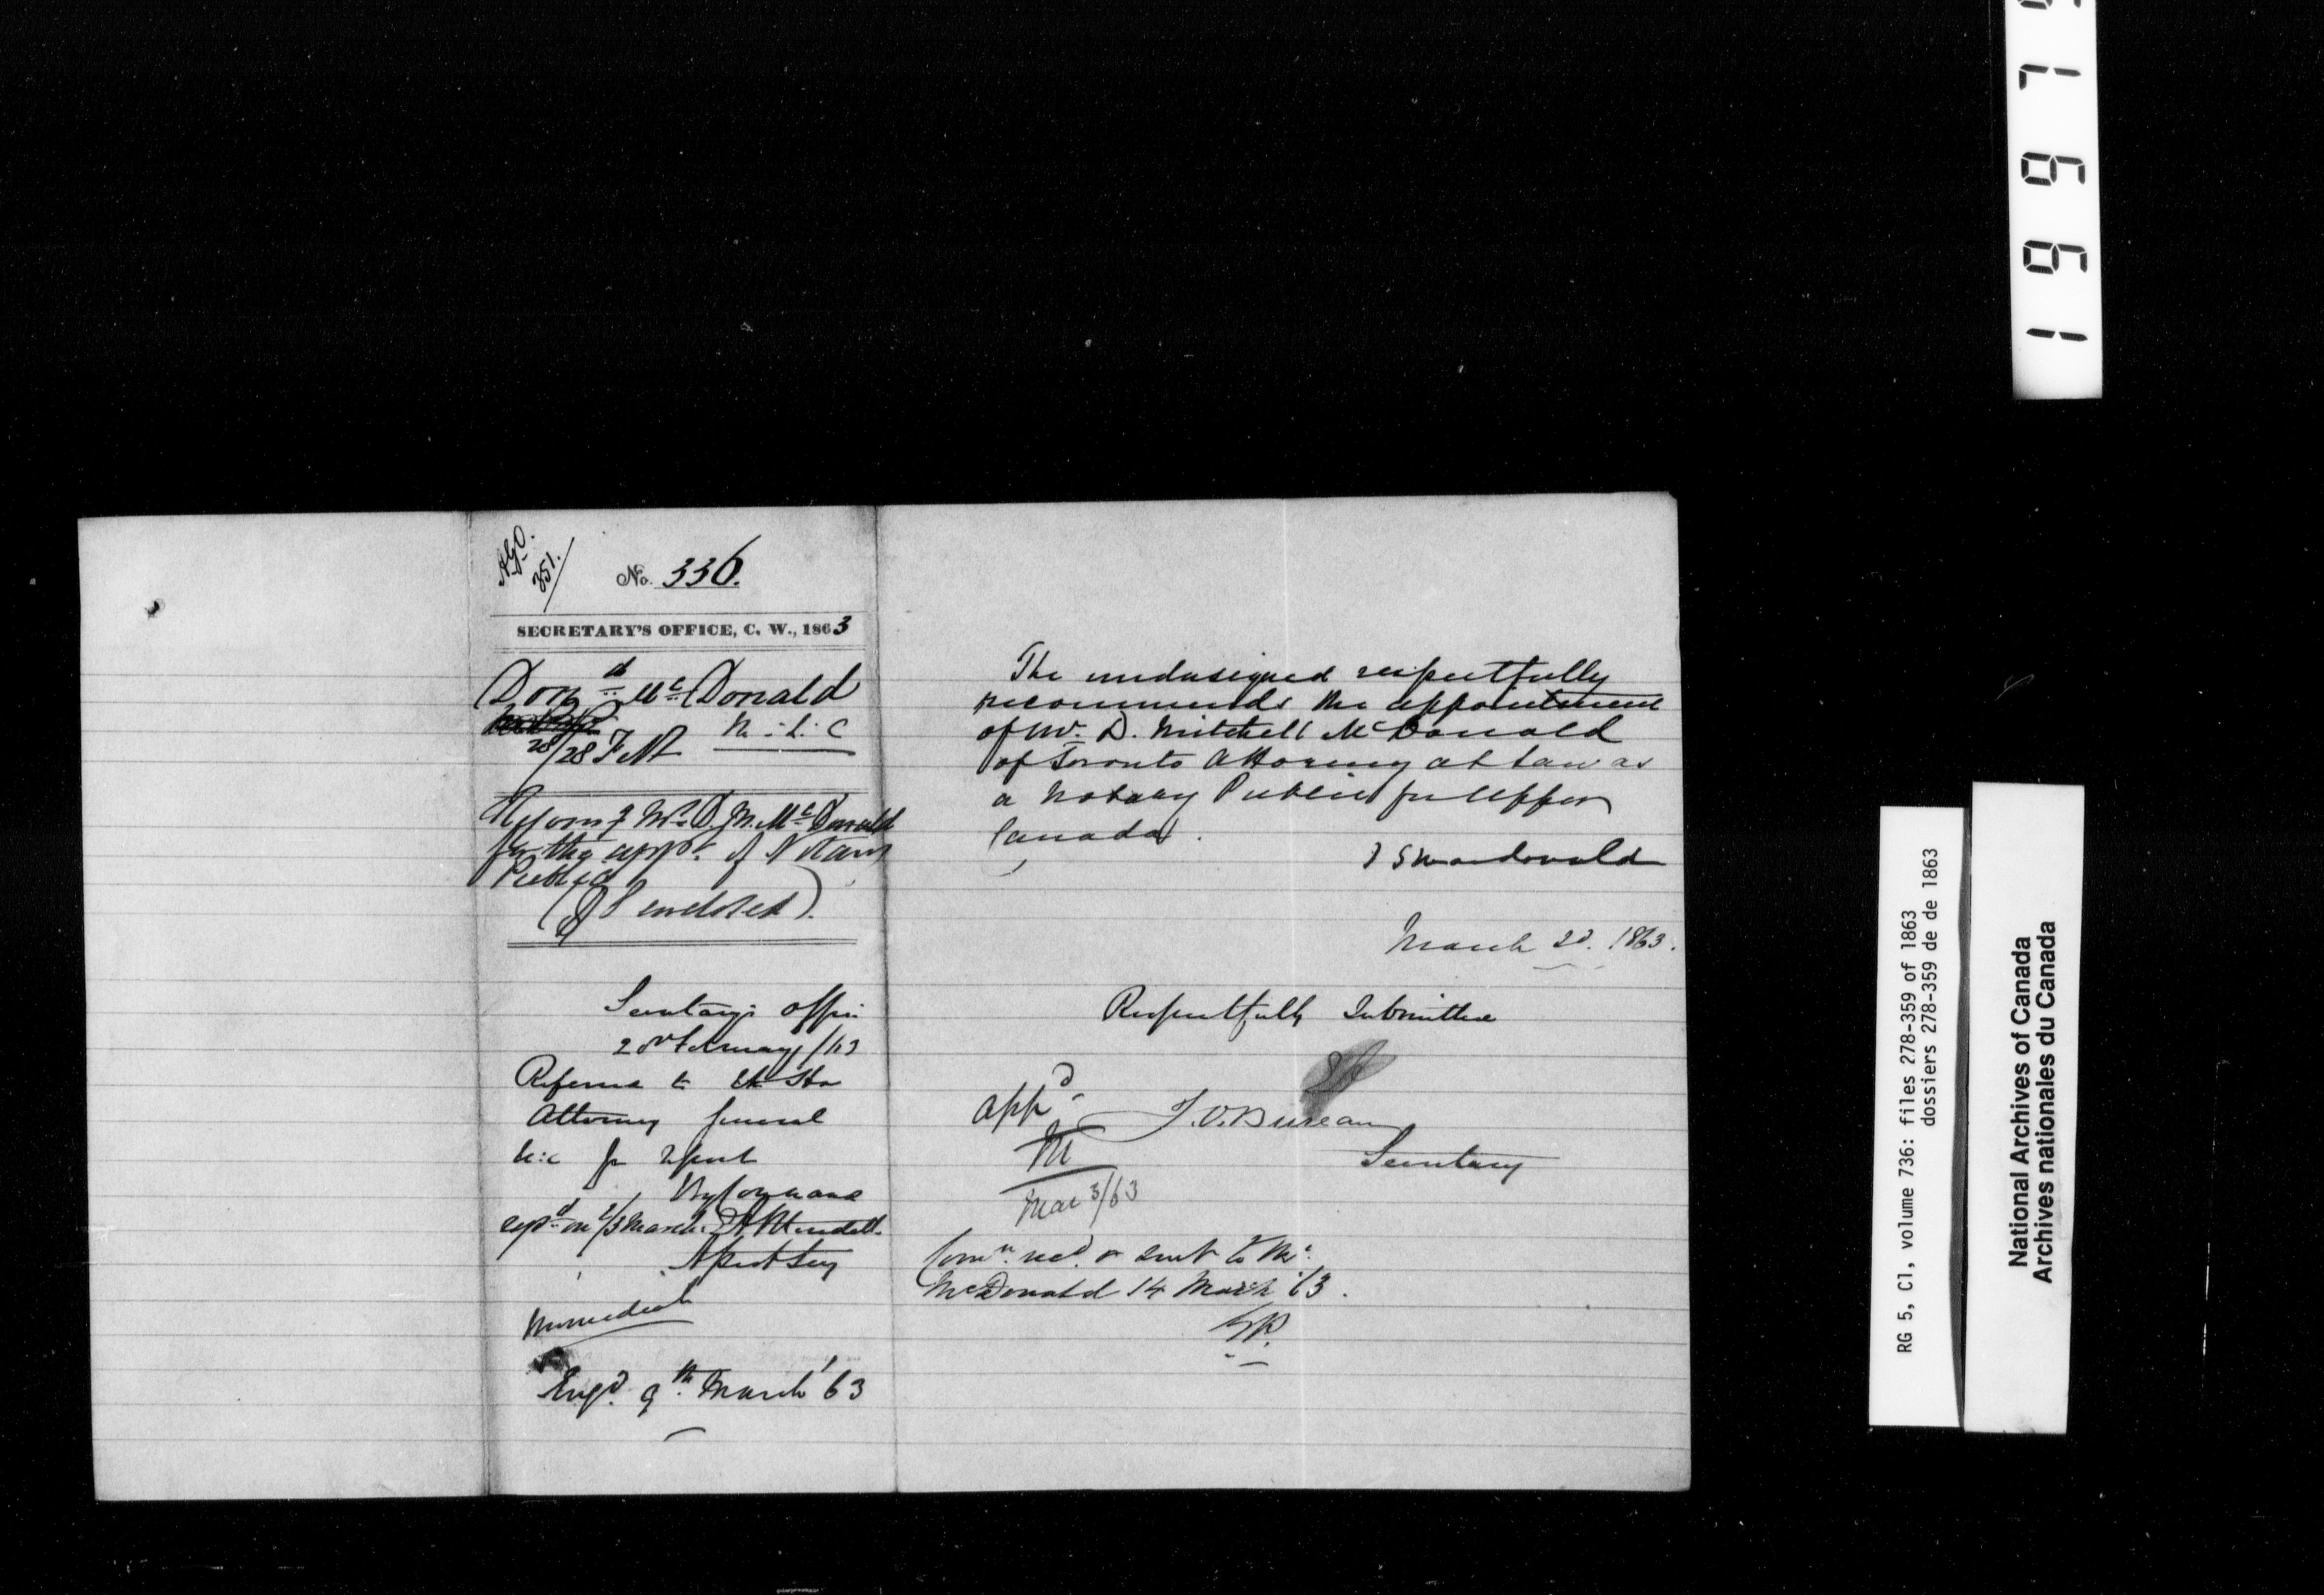 A.G.O.
351.
No. 336.
SECRETARY'S OFFICE, C. W., 1863
Don.d McDonald
28/28 Feb
M. L. C
Mr. D. M. McDonald
for the appt. of Notary
Public
(enclosed).
Secretary's Office
February /63
Referred to the Hon
Attorney General
U.C. for Report
By command
repd. on 2/3 March.
Asst Secy
Immediate
Engd. 9th. March '63
The undersigned respectfully
recommends the appointment
of Mr. D. Mitchell McDonald
of Toronto Attorney at Law as
a Notary Public for Upper
Canada.
J S Macdonald
March 2d. 1863.
Respectfully Submitted
appd.
J.O. Bureau
Secretary
M
Mar 3/63
Comn. recd. & sent to Mr.
McDonald 14 March '63.
1 9 9 7
RG 5, C1, volume 736: files 278-359 of 1863
dossiers 278-359 de de 1863
National Archives of Canada
Archives nationales du Canada